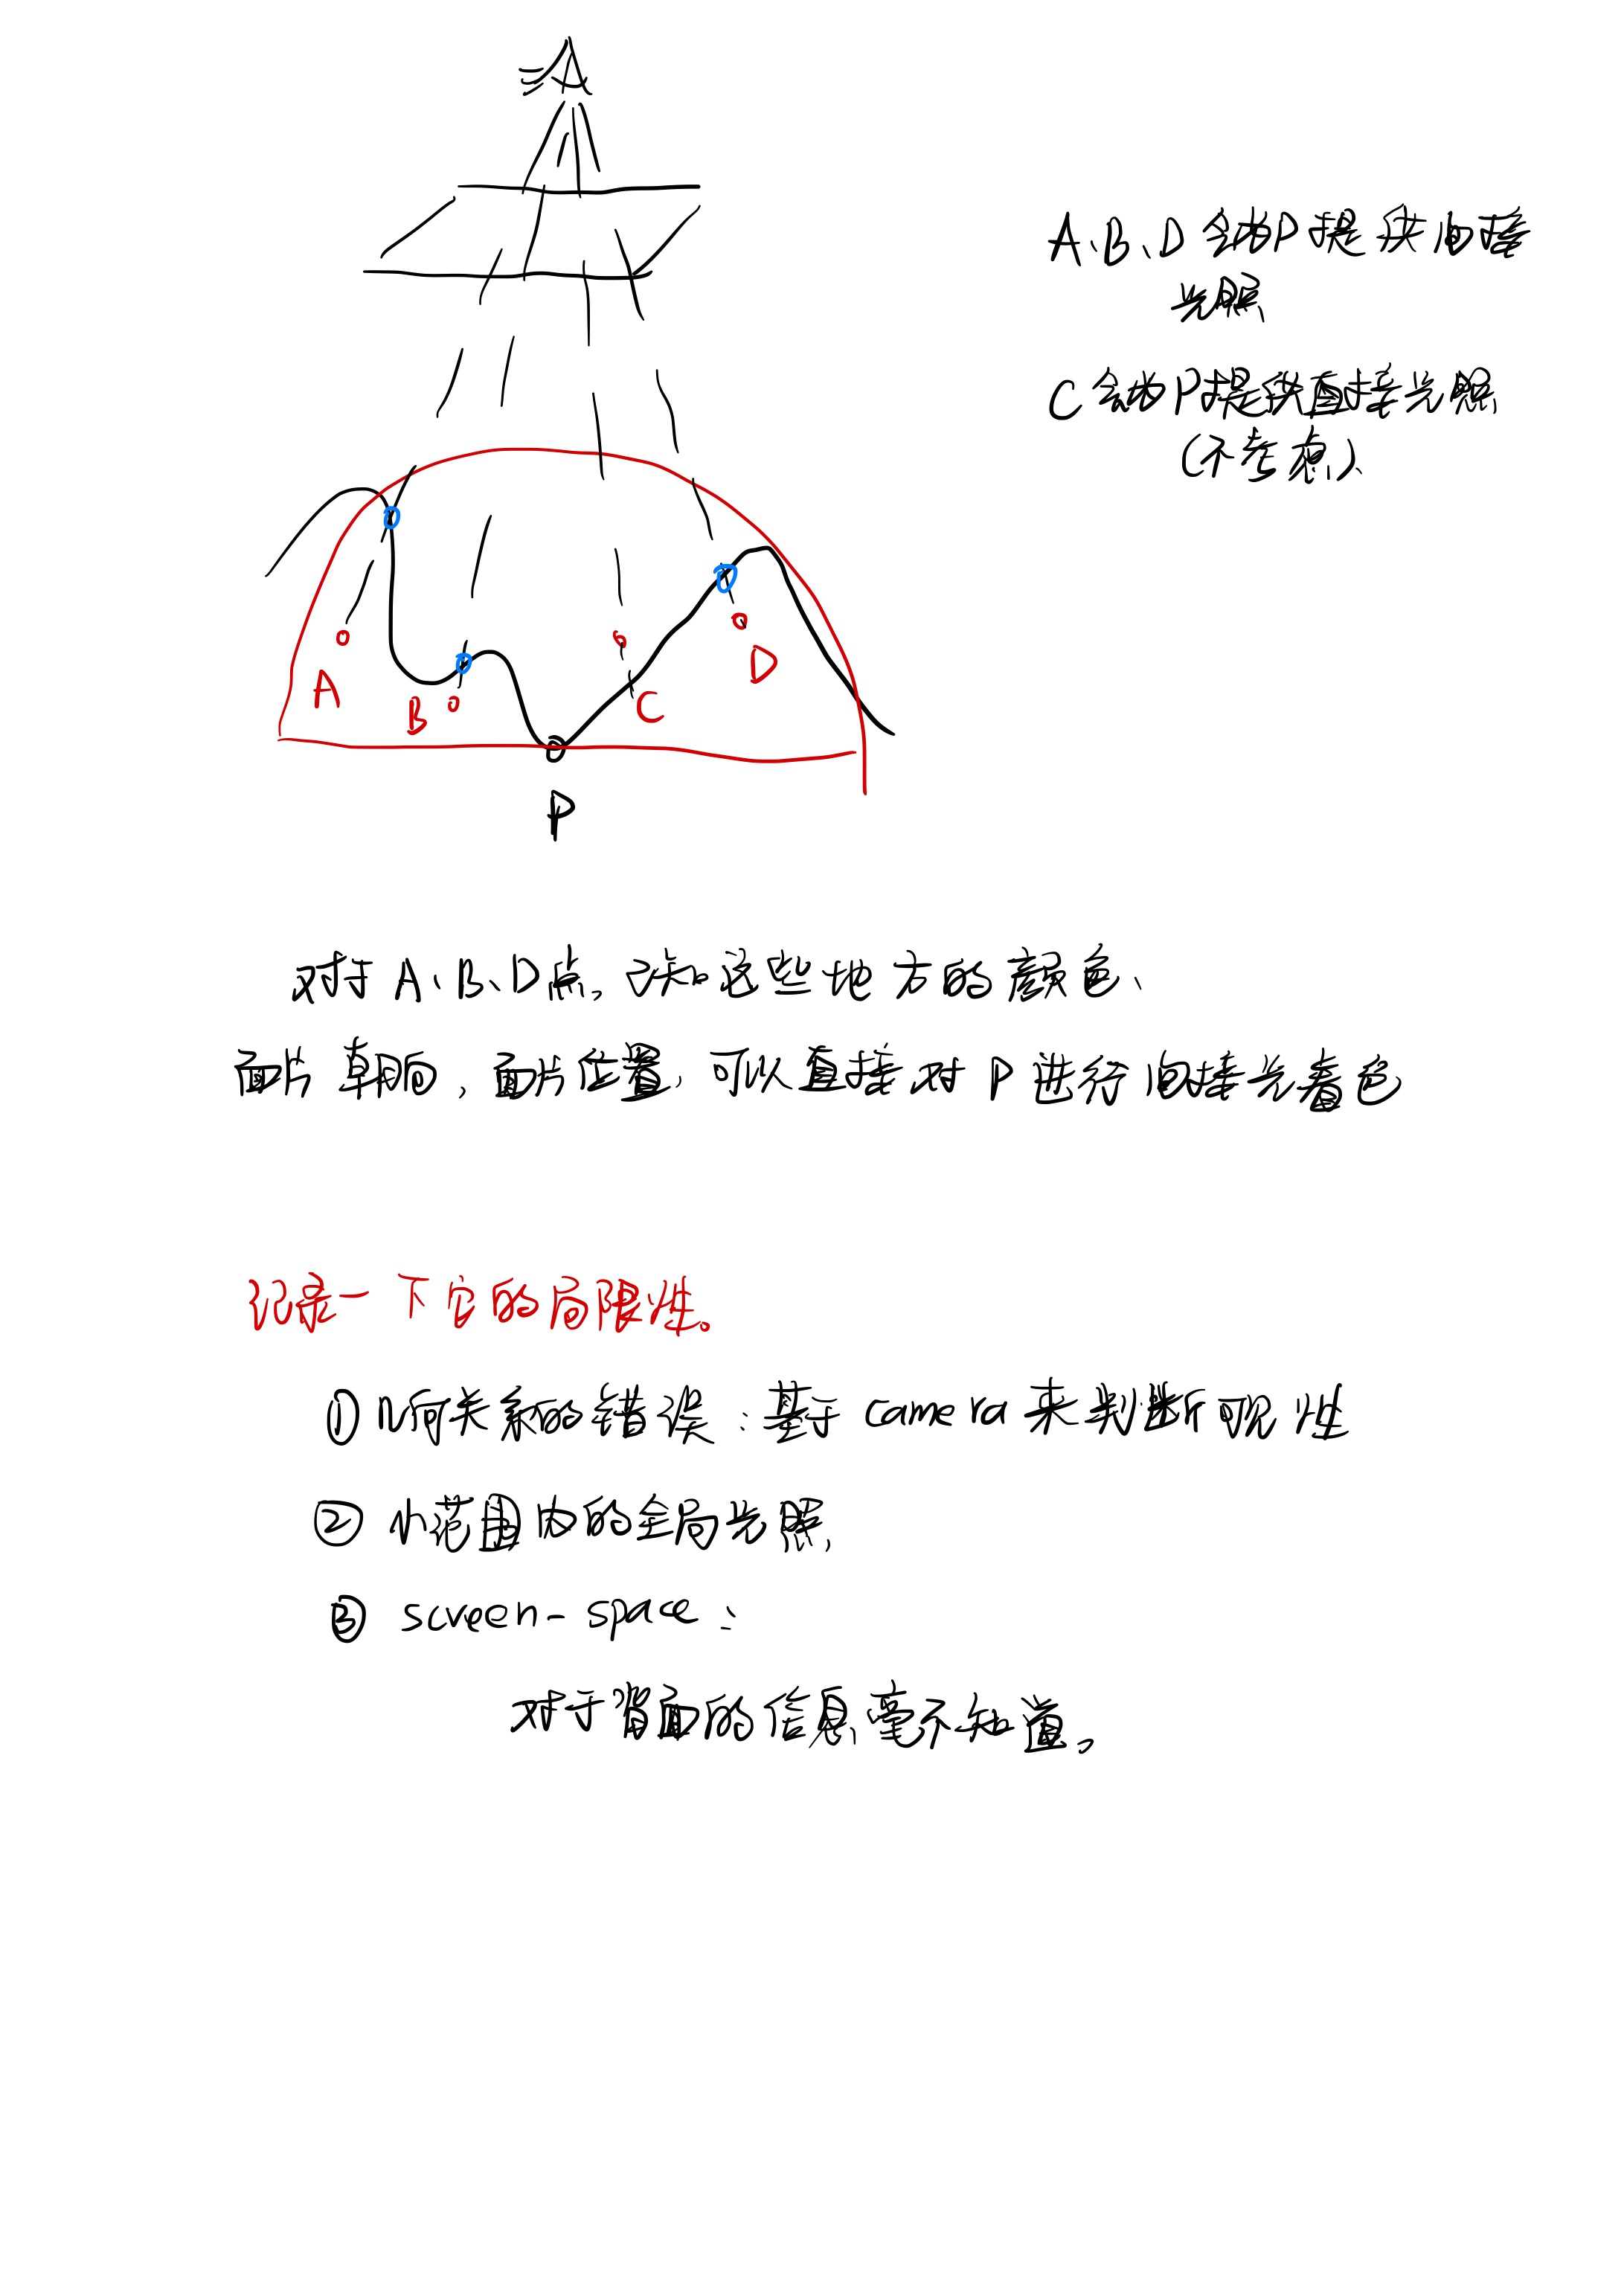 A、B、D会为P提供间接
光照
C会为P提供直接光照
(不考虑)、
A
B
C
D
P
对于A、B、D点。已知这些地方的颜色、
面片朝向,面片位置,可以直接对P进行间接光着色
记录一下它的局限性。
① 几何关系的错误:基于camera来判断可见性
② 小范围内的全局光照
③ screen-space:
对于背面的信息毫不知道。